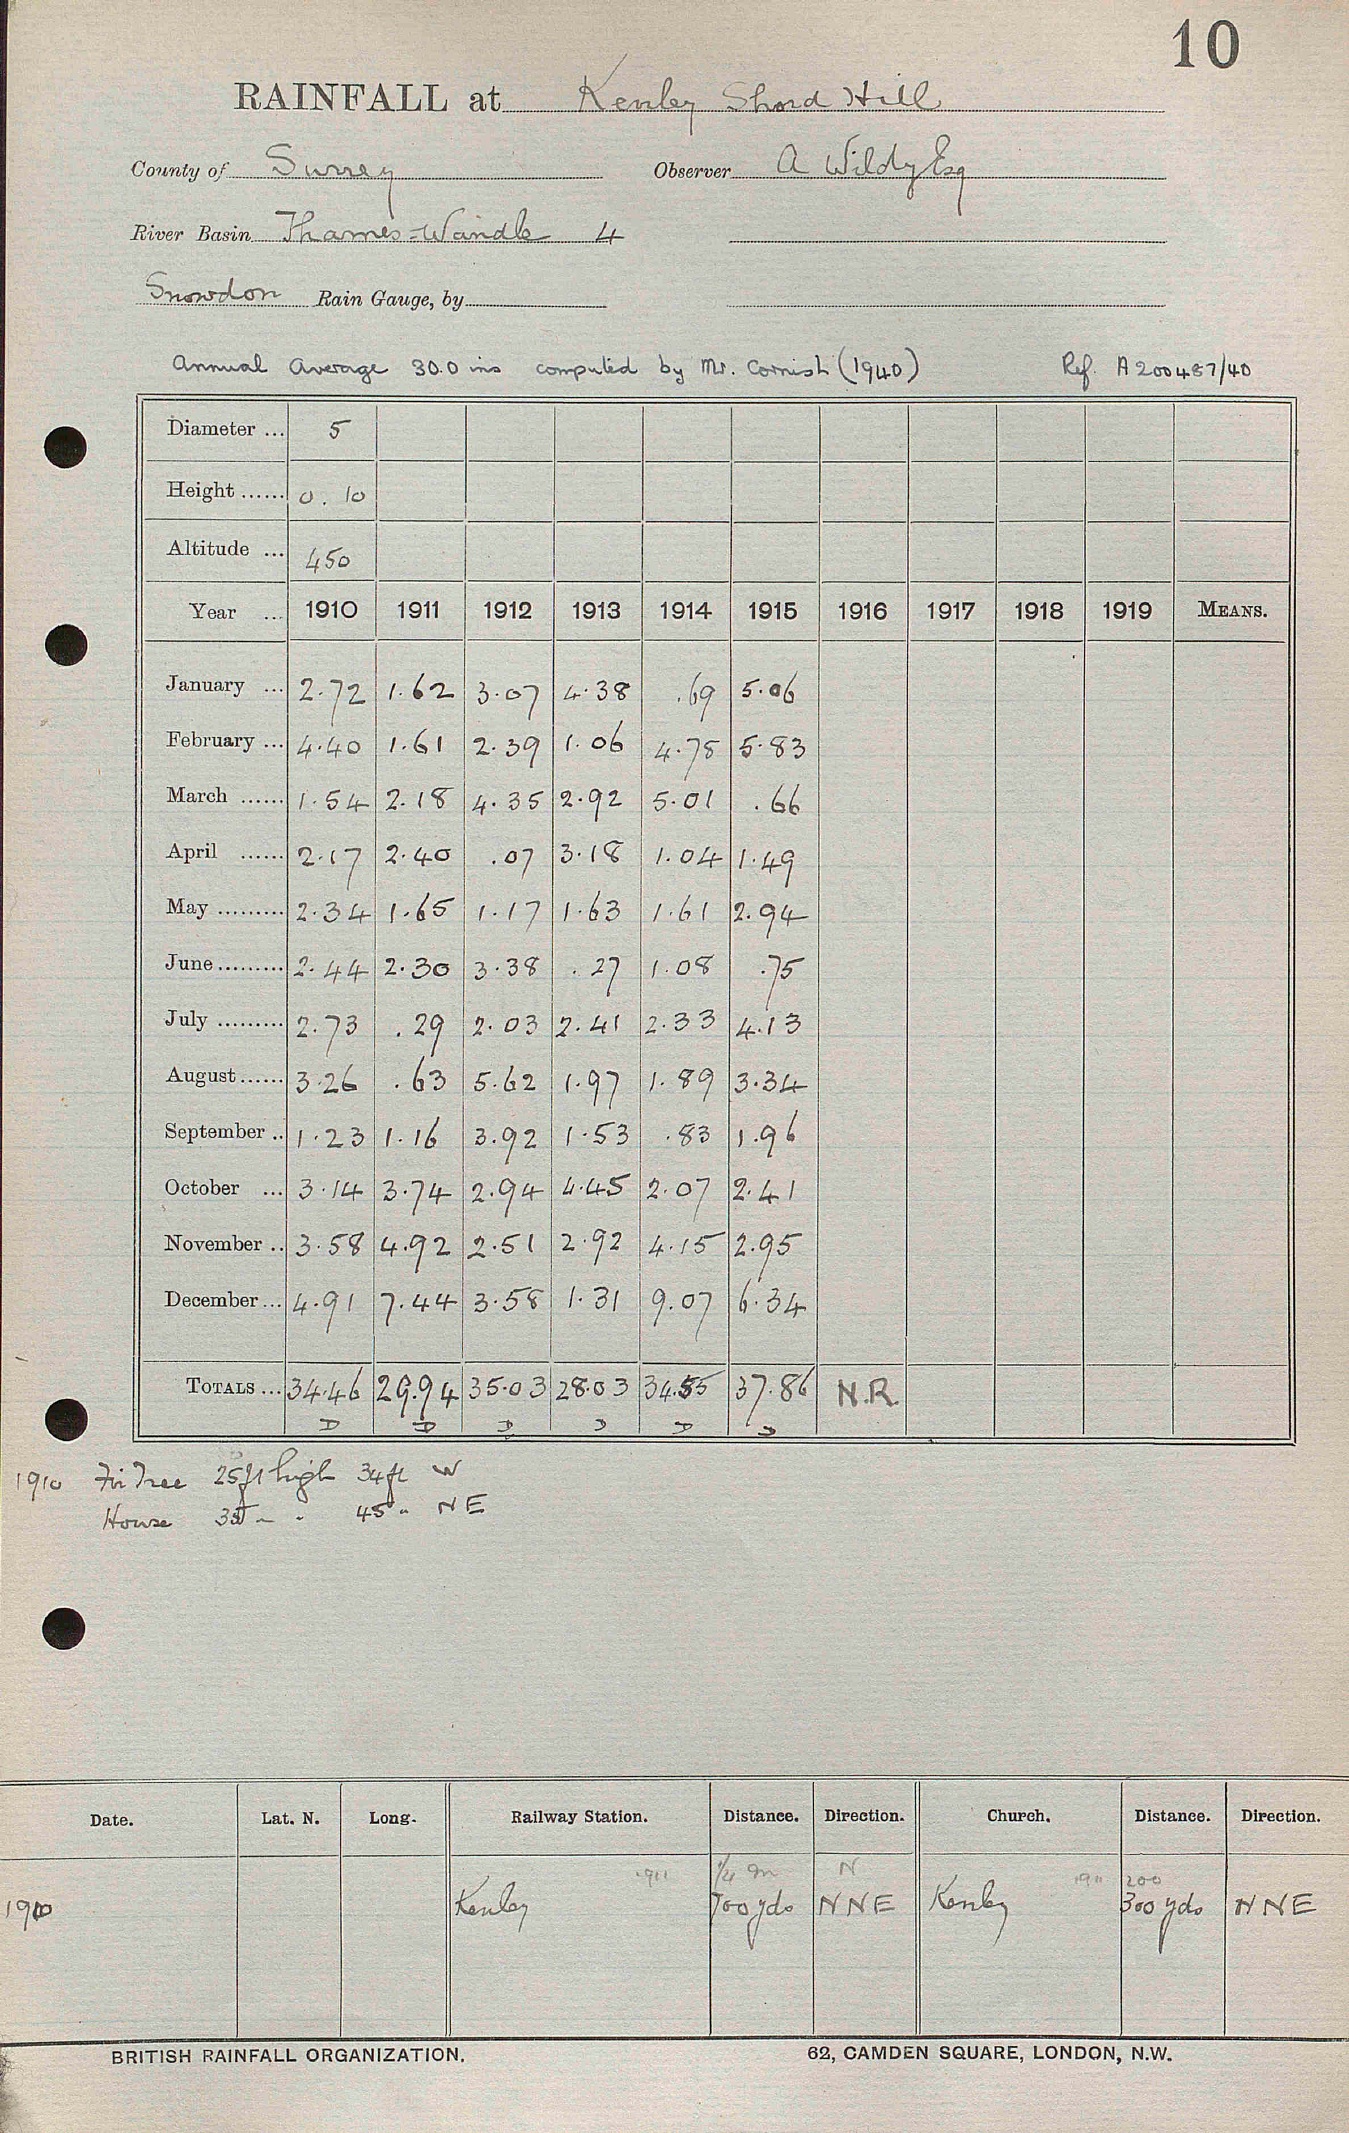 10
RAINFALL at Kenley Shord Hill
County of Surrey Observer A Wildy Esq
River Basin Thames-Wandle 4
Snowdon Rain Gauge, by
Annual Average 30.0 ins computed by Mr. Cornish (1940) Ref. A200487/40
Diameter ... 5
Height ...... 0.10
Altitude ... 450
Year ... 1910 1911 1912 1913 1914 1915 1916 1917 1918 1919 MEANS.
January ... 2.72 1.62 3.07 4.38 .69 5.06
February ... 4.40 1.61 2.39 1.06 4.78 5.83
March ...... 1.54 2.18 4.35 2.92 5.01 .66
April ...... 2.17 2.40 .07 3.18 1.04 1.49
May ......... 2.34 1.65 1.17 1.63 1.61 2.94
June ......... 2.44 2.30 3.38 .27 1.08 .75
July ......... 2.73 .29 2.03 2.41 2.33 4.13
August ...... 3.26 .63 5.62 1.97 1.89 3.34
September .. 1.23 1.16 3.92 1.53 .83 1.96
October ... 3.14 3.74 2.94 4.45 2.07 2.41
November .. 3.58 4.92 2.51 2.92 4.15 2.95
December ... 4.91 7.44 3.58 1.31 9.07 6.34
TOTALS ... 34.46 29.94 35.03 28.03 34.55 37.86 N.R.
D D D D D D
1910 Fir Tree 25ft high 34ft W
House 35 " " 45 " NE
Date. Lat. N. Long. Railway Station. Distance. Direction. Church. Distance. Direction.
1911 1/4 m N 1911 200
1910 Kenley 700 yds NNE Kenley 300 yds NNE
BRITISH RAINFALL ORGANIZATION. 62, CAMDEN SQUARE, LONDON, N.W.